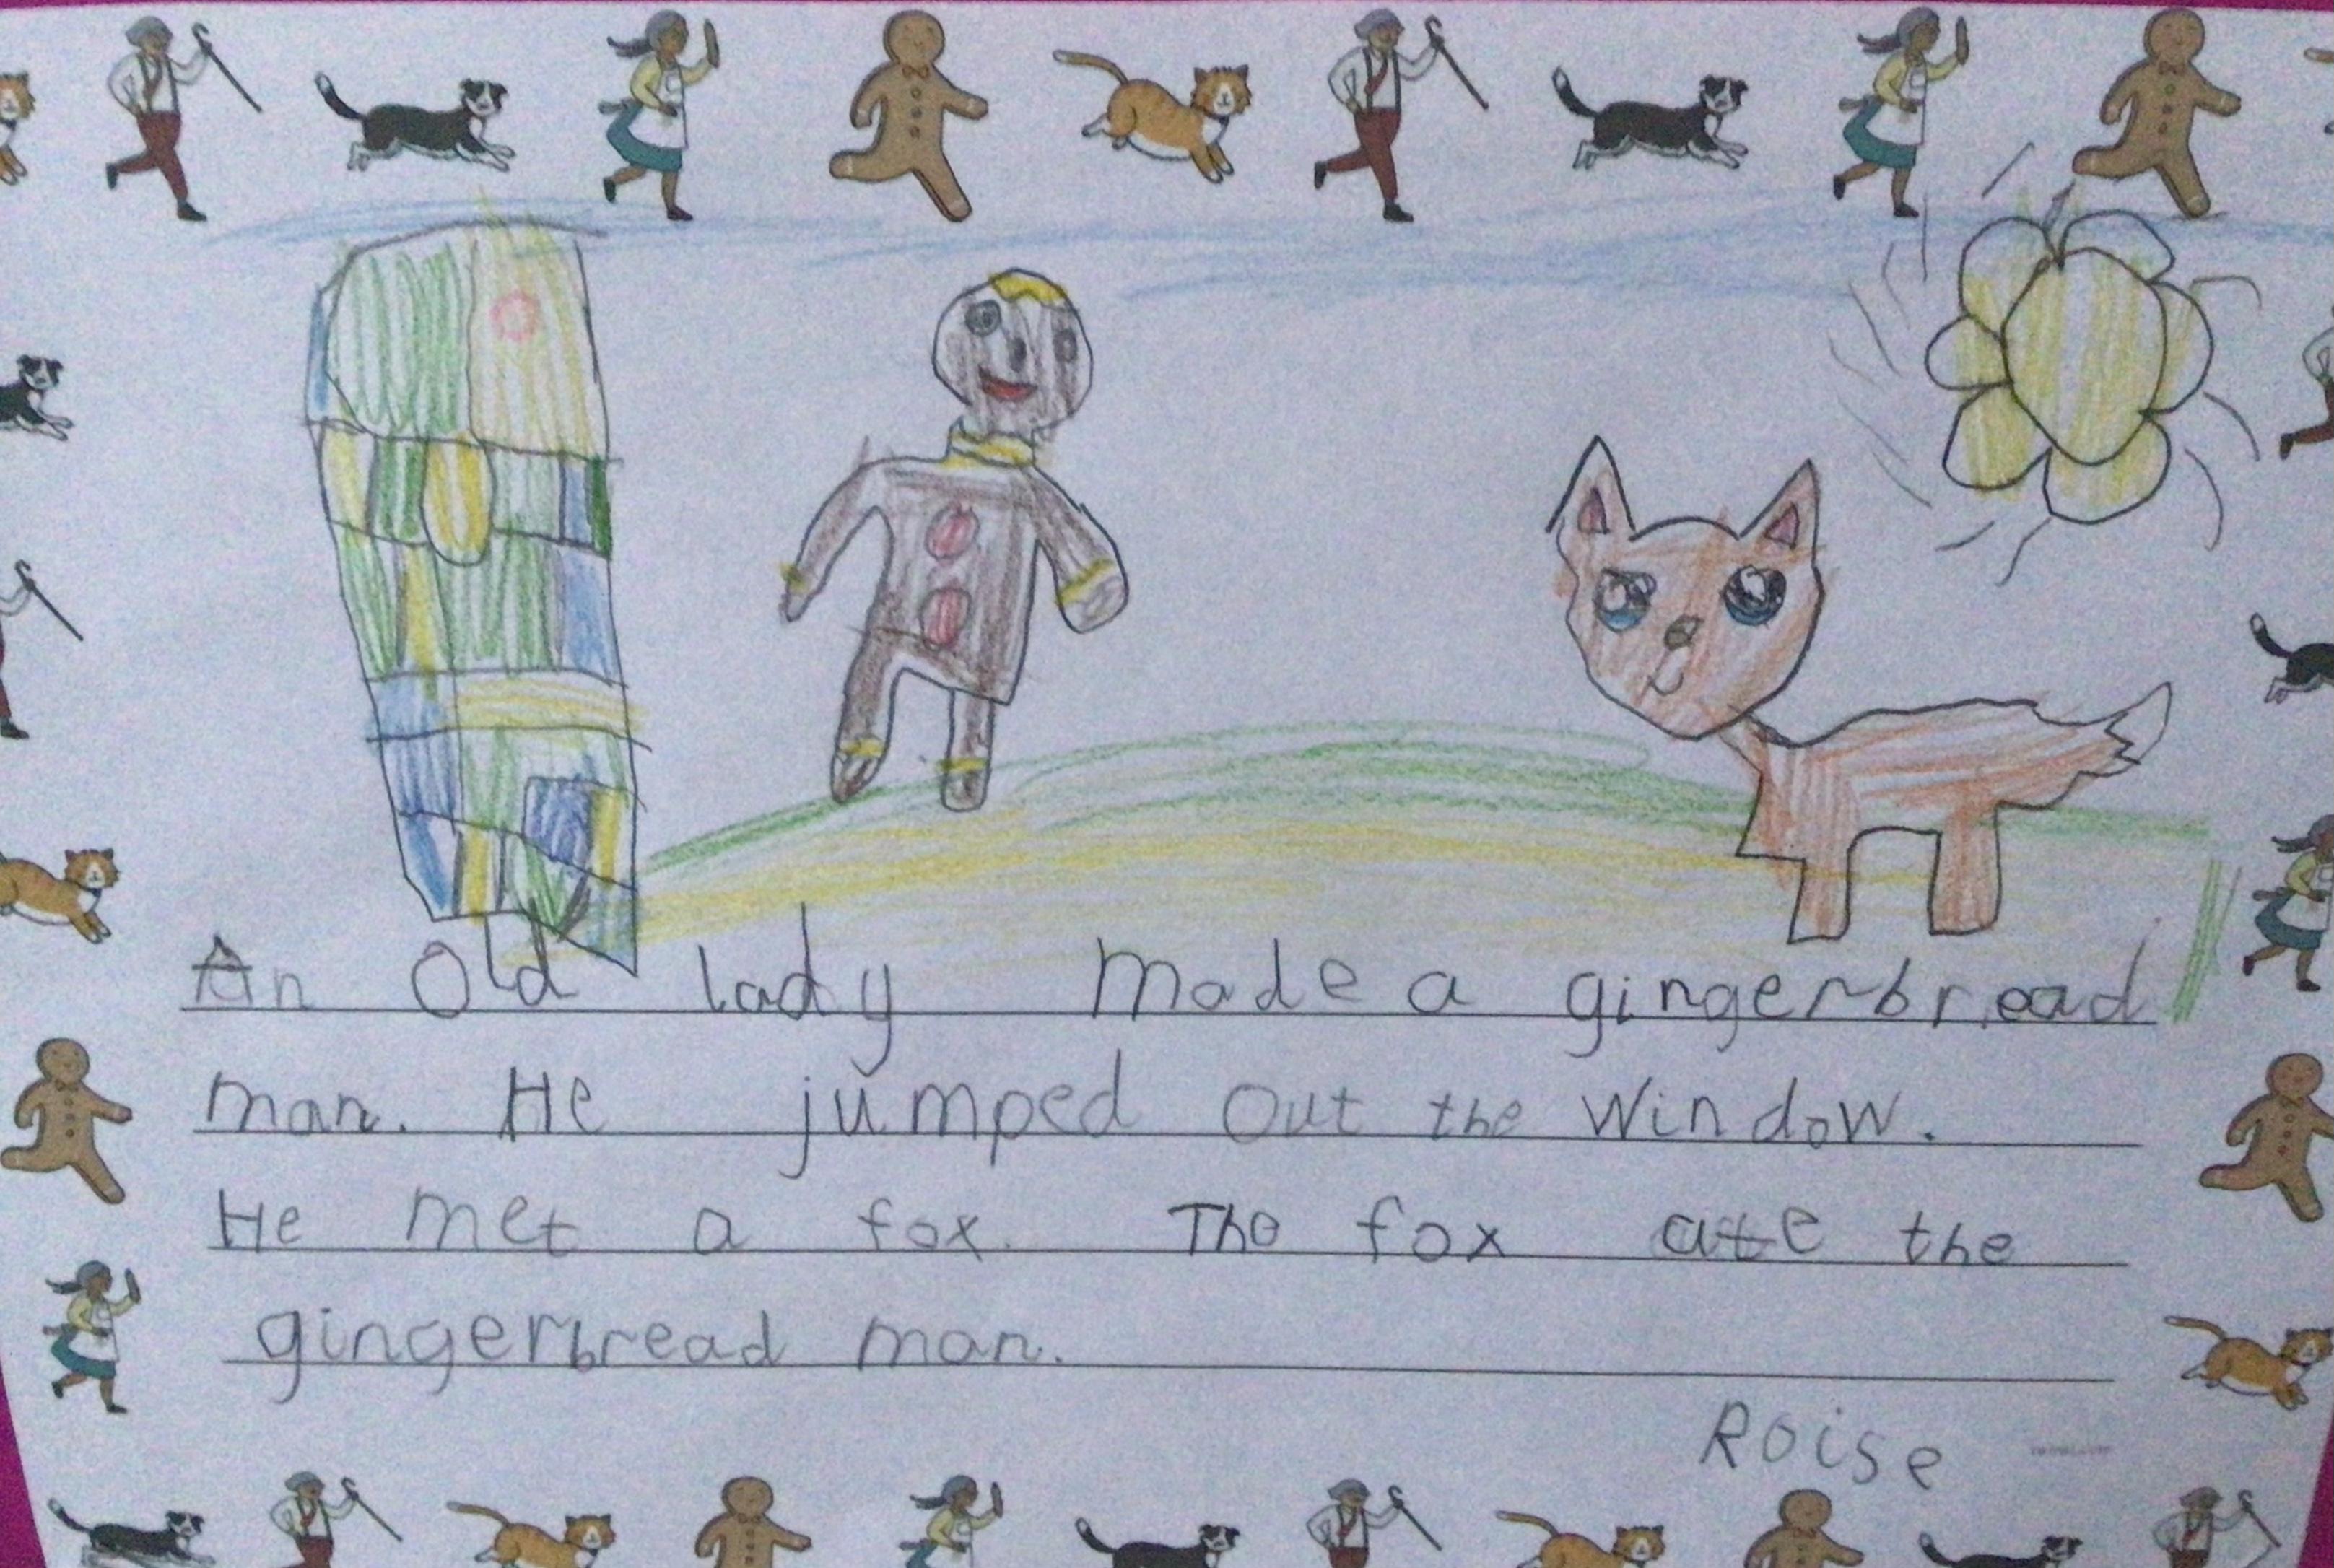 An Old lady made a gingerbread
man. He jumped out the window.
He met a fox. The fox ate the
gingerbread man.
Roise